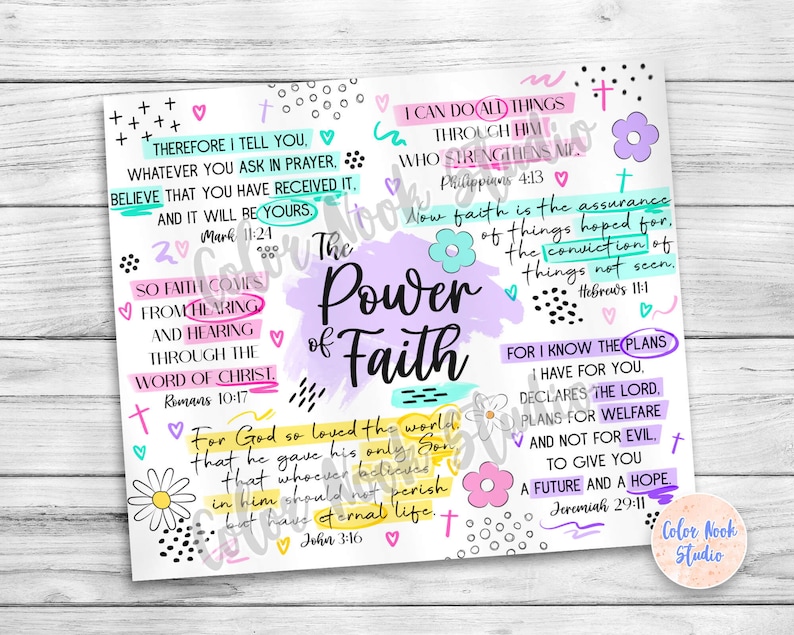 THEREFORE I TELL YOU,
WHATEVER YOU ASK IN PRAYER,
BELIEVE THAT YOU HAVE RECEIVED IT,
AND IT WILL BE YOURS.
Mark 11:24
I CAN DO ALL THINGS
THROUGH HIM
WHO STRENGTHENS ME.
Philippians 4:13
Now faith is the assurance
of things hoped for,
the conviction of
things not seen.
Hebrews 11:1
The
Power
of Faith
SO FAITH COMES
FROM HEARING,
AND HEARING
THROUGH THE
WORD OF CHRIST.
Romans 10:17
FOR I KNOW THE PLANS
I HAVE FOR YOU,
DECLARES THE LORD,
PLANS FOR WELFARE
AND NOT FOR EVIL,
TO GIVE YOU
A FUTURE AND A HOPE.
Jeremiah 29:11
For God so loved the world,
that he gave his only Son,
that whoever believes
in him should not perish
but have eternal life.
John 3:16
Color Nook Studio
Color Nook Studio
Color Nook
Studio